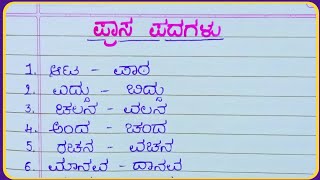 ಪ್ರಾಸ ಪದಗಳು
1. ಆಟ - ಪಾಠ
2. ಎದ್ದು - ಬಿದ್ದು
3. ಚಲನ - ವಲನ
4. ಅಂದ - ಚಂದ
5. ರಚನ - ವಚನ
6. ಮಾನವ - ದಾನವ